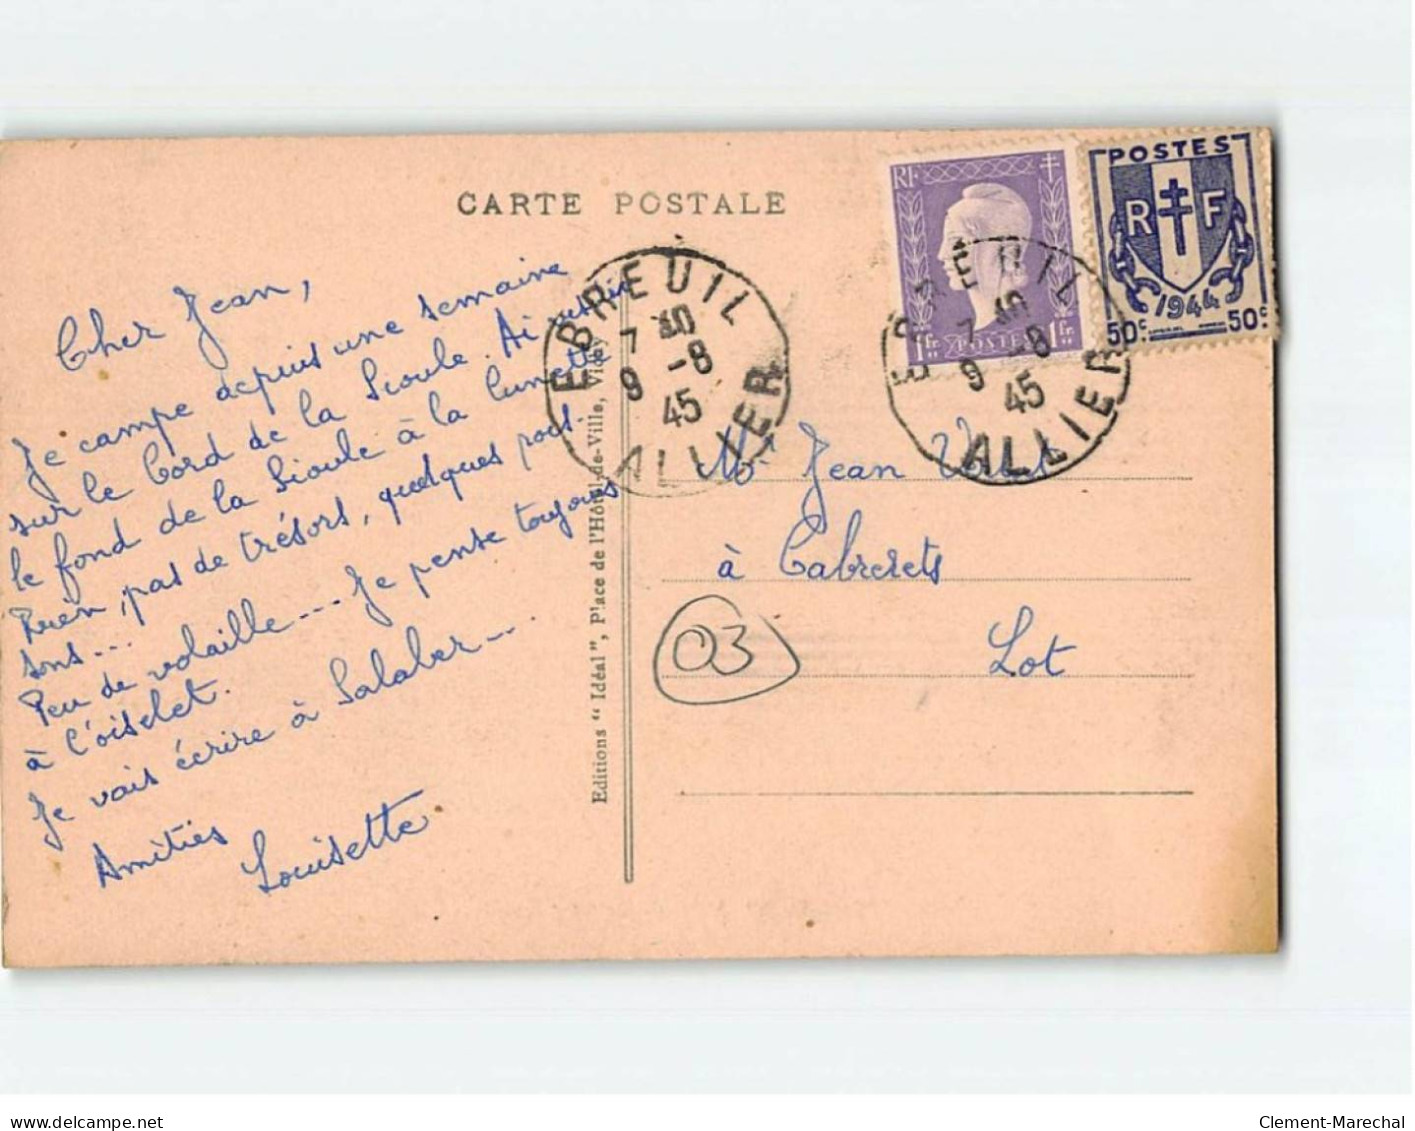 CARTE POSTALE
Cher Jean,
Je campe depuis une semaine
sur le bord de la Sioule. Ai
le fond de la Sioule à la lunette
Rien, pas de trésors, quelques pois
sons...
Peu de volaille... Je pense toujours
à l'oiselet.
Je vais écrire à Salaber...
Amitiés
Louisette
Editions " Idéal ", Place de l'Hôtel-de-Ville, Vichy
EBREUIL
7 30
9 -8
45
ALLIER
RF
1fr POSTES 1fr
POSTES
R F
1944
50c 50c
EBREUIL
7
9 -8
45
ALLIER
Mr Jean
à Cabrerets
Lot
03
www.delcampe.net
Clement-Marechal